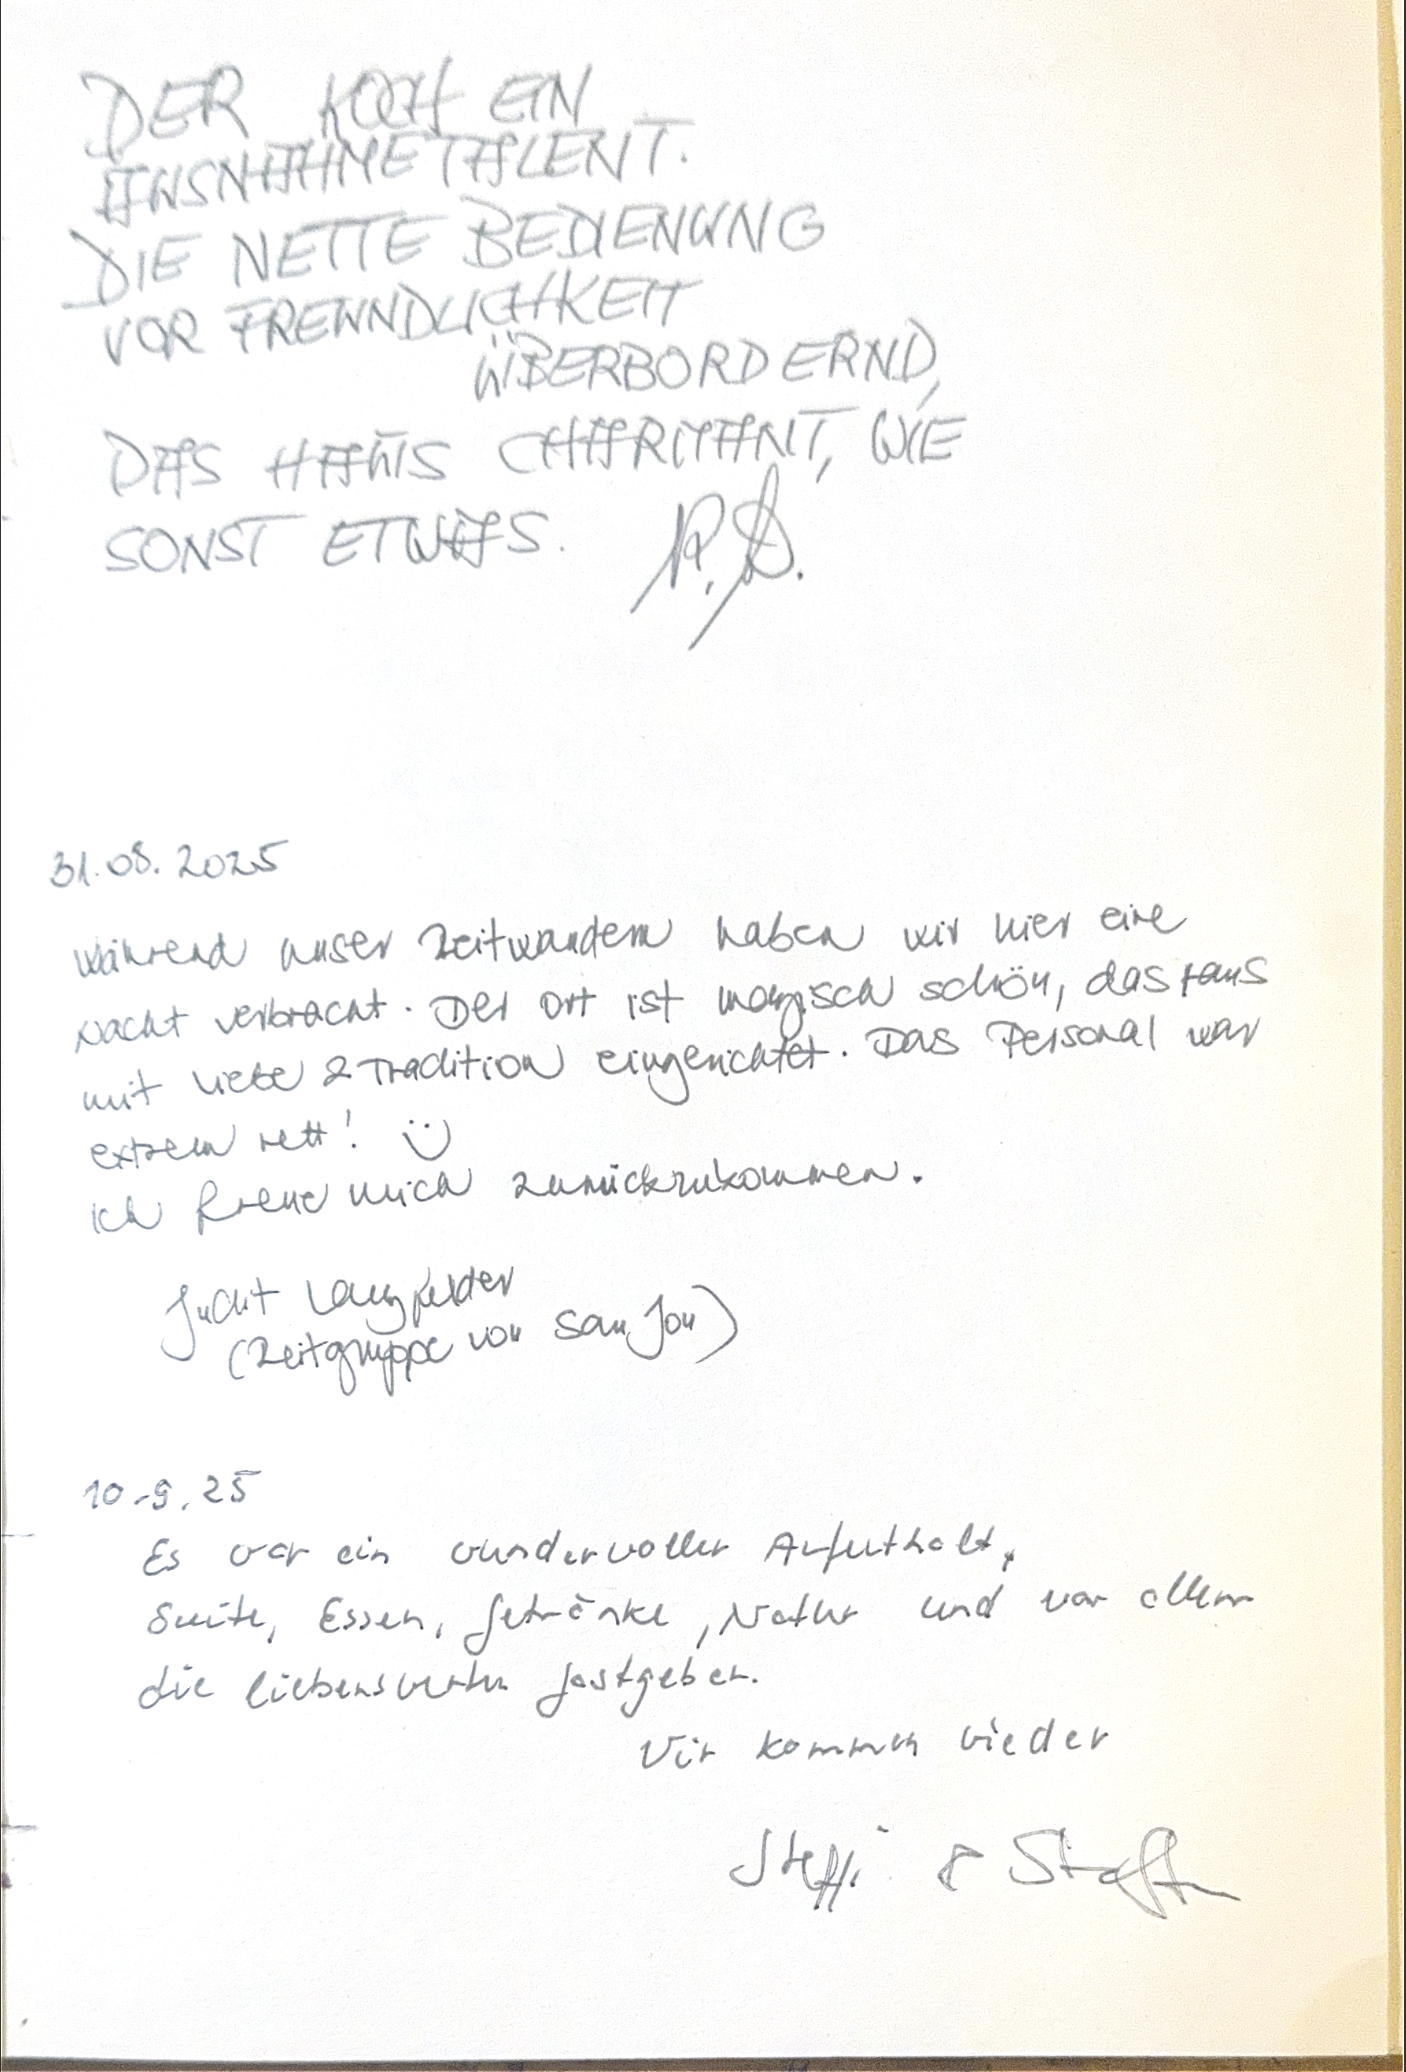 DER KOCH EIN
AUSNAHMETALENT.
DIE NETTE BEDIENUNG
VOR FREUNDLICHKEIT
ÜBERBORDERND,
DAS HAUS CHARMANT, WIE
SONST ETWAS.
31.08.2025
Während unser Zeitwandern haben wir hier eine
Nacht verbracht. Der Ort ist magisch schön, das Haus
mit Liebe & Tradition eingerichtet. Das Personal war
extrem nett! :)
Ich freue mich zurückzukommen.
Judit
(Zeitgruppe von San Jon)
10.9.25
Es war ein wundervoller Aufenthalt,
Suite, Essen, Getränke, Natur und vor allem
die liebenswerten Gastgeber.
Wir kommen wieder
Steffi &